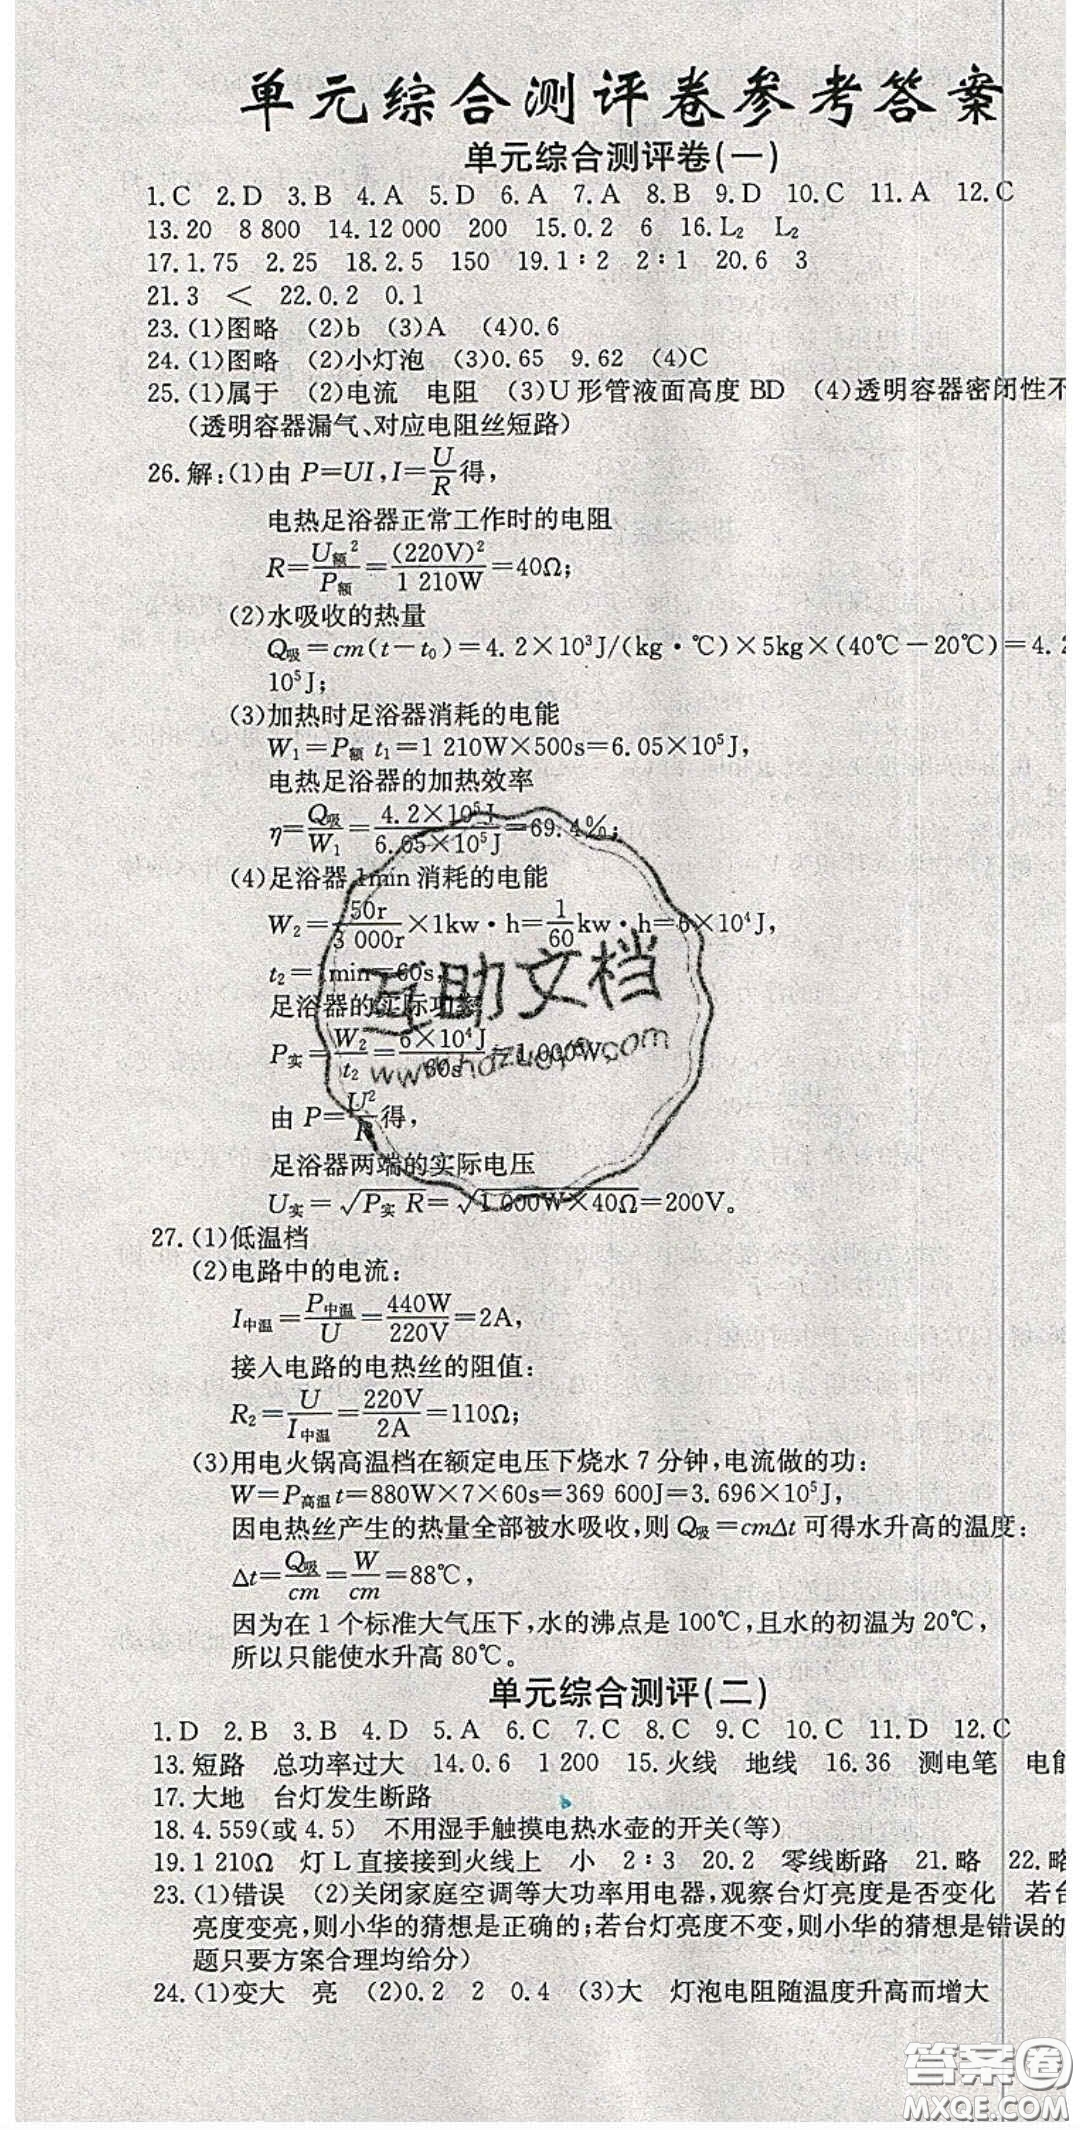 单元综合测评卷参考答案
单元综合测评卷(一)
1.C 2.D 3.B 4.A 5.D 6.A 7.A 8.B 9.D 10.C 11.A 12.C
13.20 8 800 14.12 000 200 15.0.2 6 16.L₂ L₂
17.1.75 2.25 18.2.5 150 19.1∶2 2∶1 20.6 3
21.3 < 22.0.2 0.1
23.(1)图略 (2)b (3)A (4)0.6
24.(1)图略 (2)小灯泡 (3)0.65 9.62 (4)C
25.(1)属于 (2)电流 电阻 (3)U形管液面高度 BD (4)透明容器密闭性不
(透明容器漏气、对应电阻丝短路)
26.解:(1)由 P=UI,I=U/R得,
电热足浴器正常工作时的电阻
R=U额²/P额=(220V)²/1 210W=40Ω;
(2)水吸收的热量
Q吸=cm(t−t₀)=4.2×10³J/(kg·℃)×5kg×(40℃−20℃)=4.2
10⁵J;
(3)加热时足浴器消耗的电能
W₁=P额 t₁=1 210W×500s=6.05×10⁵J,
电热足浴器的加热效率
η=Q吸/W₁=4.2×10⁵J/6.05×10⁵J=69.4%;
(4)足浴器 1min 消耗的电能
W₂=50r/3 000r×1kw·h=1/60kw·h=6×10⁴J,
t₂=1min=60s,
足浴器的实际功率
P实=W₂/t₂=6×10⁴J/60s=1 000W,
由 P=U²/R得,
足浴器两端的实际电压
U实=√(P实 R)=√(1 000W×40Ω)=200V。
27.(1)低温档
(2)电路中的电流:
I中温=P中温/U=440W/220V=2A,
接入电路的电热丝的阻值:
R₂=U/I中温=220V/2A=110Ω;
(3)用电火锅高温档在额定电压下烧水7分钟,电流做的功:
W=P高温t=880W×7×60s=369 600J=3.696×10⁵J,
因电热丝产生的热量全部被水吸收,则Q吸=cmΔt可得水升高的温度:
Δt=Q吸/cm=W/cm=88℃,
因为在1个标准大气压下,水的沸点是100℃,且水的初温为20℃,
所以只能使水升高80℃。
单元综合测评(二)
1.D 2.B 3.B 4.D 5.A 6.C 7.C 8.C 9.C 10.C 11.D 12.C
13.短路 总功率过大 14.0.6 1 200 15.火线 地线 16.36 测电笔 电能
17.大地 台灯发生断路
18.4.559(或4.5) 不用湿手触摸电热水壶的开关(等)
19.1 210Ω 灯L直接接到火线上 小 2∶3 20.2 零线断路 21.略 22.略
23.(1)错误 (2)关闭家庭空调等大功率用电器,观察台灯亮度是否变化 若台
亮度变亮,则小华的猜想是正确的;若台灯亮度不变,则小华的猜想是错误的
题只要方案合理均给分)
24.(1)变大 亮 (2)0.2 2 0.4 (3)大 灯泡电阻随温度升高而增大
互助文档
www.hdzuoye.com
答案圈
MXQE.COM